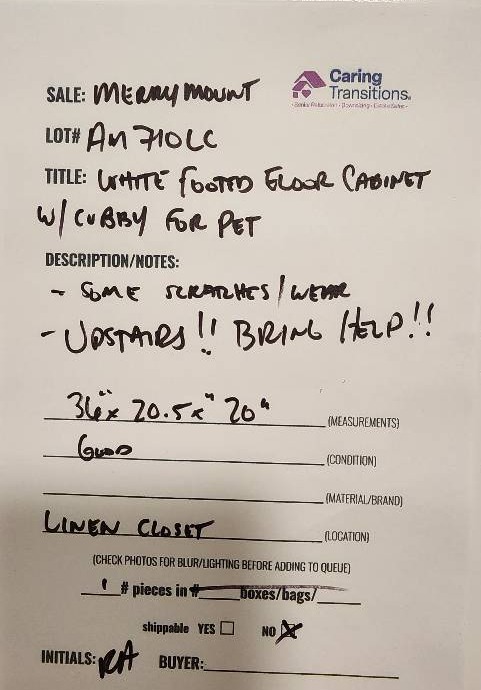 Caring
Transitions.
SALE: MERRYMOUNT
LOT# AM710LC
TITLE: WHITE FOOTED FLOOR CABINET
W/ CUBBY FOR PET
DESCRIPTION/NOTES:
- SOME SCRATCHES/WEAR
- UPSTAIRS!! BRING HELP!!
36" x 20.5 x" 20" (MEASUREMENTS)
GOOD (CONDITION)
(MATERIAL/BRAND)
LINEN CLOSET (LOCATION)
(CHECK PHOTOS FOR BLUR/LIGHTING BEFORE ADDING TO QUEUE)
1 # pieces in # boxes/bags/
shippable YES NO X
INITIALS: RA BUYER: